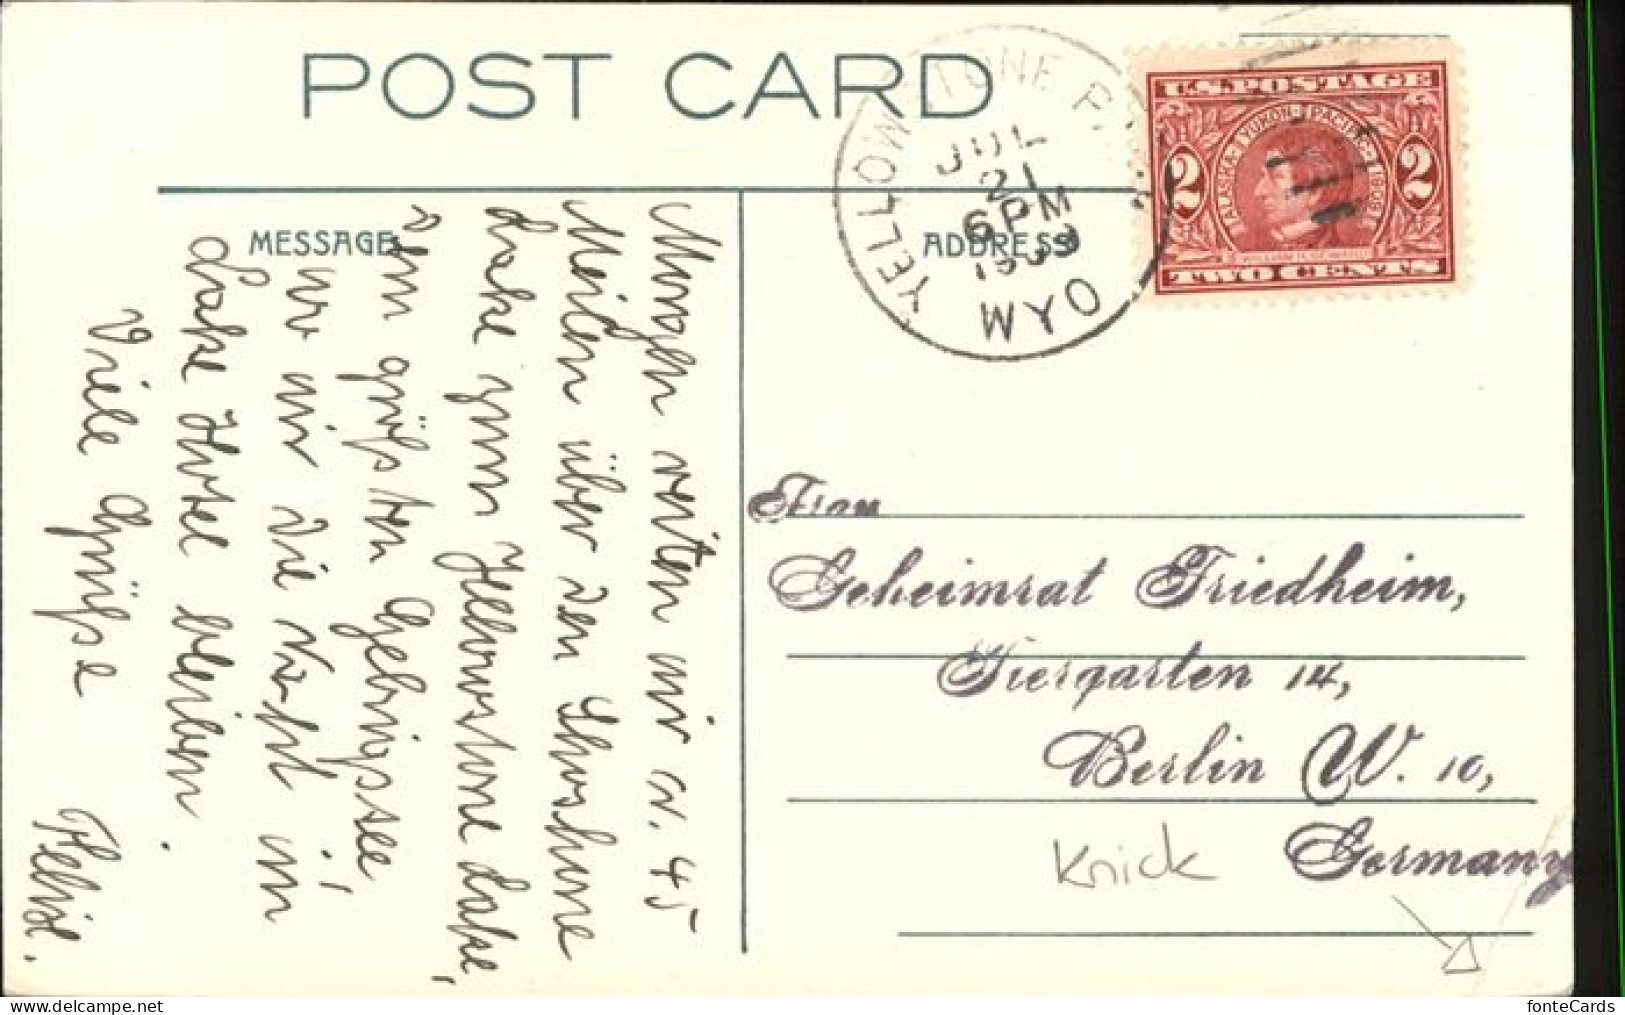 POST CARD
MESSAGE
ADDRESS
YELLOWSTONE PARK
JUL
21
6 PM
1909
WYO
U.S. POSTAGE
ALASKA-YUKON-PACIFIC-1909
2 2
WILLIAM H. SEWARD
TWO CENTS
Morgen reiten wir ca. 45
Meilen über den Shoshone
Lake zum Yellowstone Lake,
dem größten Gebirgssee,
wo wir die Nacht im
Lake Hotel bleiben.
Viele Grüße
Frau
Geheimrat Friedheim,
Tiergarten 14,
Berlin W. 10,
Germany
Knick
www.delcampe.net
fonteCards